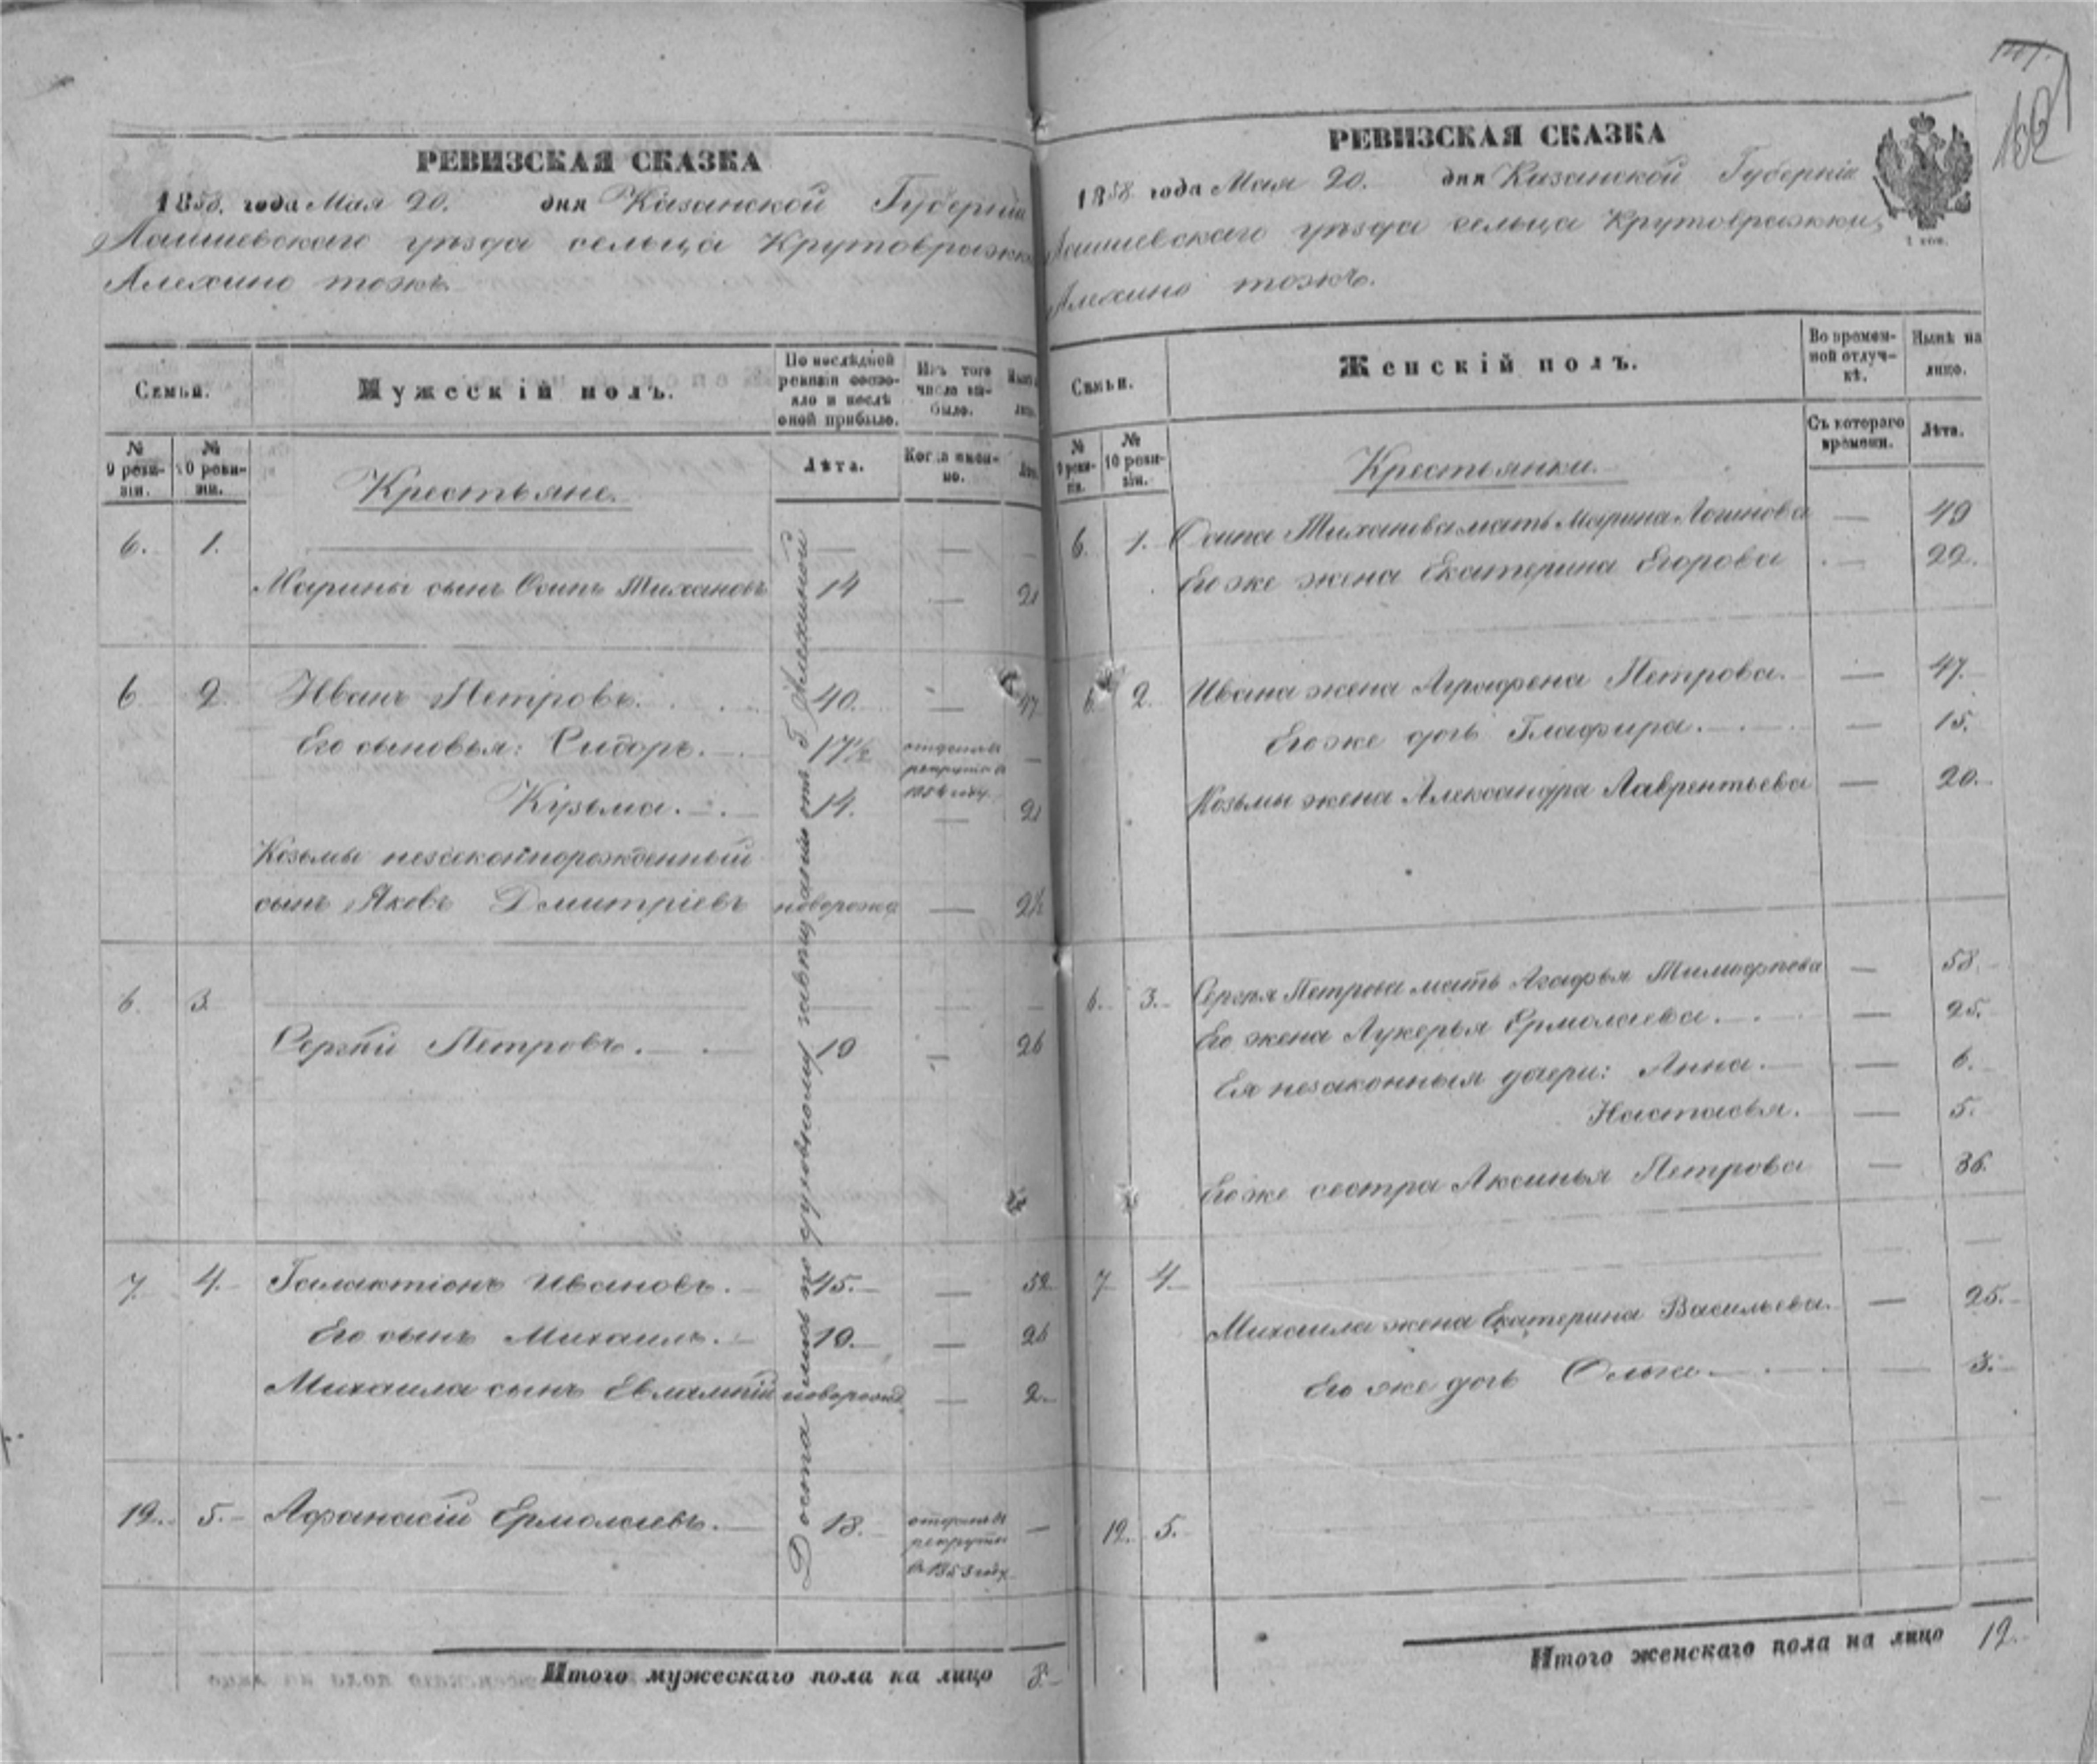 РЕВИЗСКАЯ СКАЗКА
1858. года Мая 20. дня Казанской Губерніи
Лаишевскаго уѣзда сельца Крутовражки
Алехино тожъ.
Семьи.
Мужескій полъ.
По послѣдней ревизіи состояло и послѣ оной прибыло.
Изъ того числа выбыло.
№ 9 ревизіи.
№ 10 ревизіи.
Лѣта.
Когда именно.
Крестьяне.
6. 1.
Марины сынъ Осипъ Тихановъ 14 — 21
6 2 Иванъ Петровъ. 40. — 47
Его сыновья: Сидоръ. 17½ отданъ въ рекруты въ —
Кузьма. 14. — 21
Козьмы незаконнорожденный
сынъ Яковъ Дмитріевъ новорожд — 2½
6 3.
Сергѣй Петровъ. 19 — 26
7. 4. Галактіонъ Ивановъ. 45. — 52
Его сынъ Михаилъ. 19. — 26
Михаила сынъ Евлампій новорожд. — 2.
12. 5. Афанасій Ермолаевъ. 18. отданъ въ рекруты въ 1853 году —
Достались по духовному завѣщанію отъ Г. Алехиной
Итого мужескаго пола на лицо 8.
РЕВИЗСКАЯ СКАЗКА
1858 года Мая 20. дня Казанской Губерніи
Лаишевскаго уѣзда сельца Крутовражки,
Алехино тожъ.
Семьи.
Женскій полъ.
Во временной отлучкѣ.
Нынѣ на лицо.
№ 9 ревизіи.
№ 10 ревизіи.
Съ котораго времени.
Лѣта.
Крестьянки.
6. 1. Осипа Тиханова мать Марина Логинова — 49
Его же жена Екатерина Егорова — 22.
6. 2. Ивана жена Аграфена Петрова. — 47.
Его же дочь Глафира. — 15.
Козьмы жена Александра Лаврентьева — 20.
6. 3. Сергѣя Петрова мать Агафья Тимофѣева — 58.
Его жена Лукерья Ермолаева. — 25.
Ея незаконныя дочери: Анна. — 6.
Настасья. — 5.
Его же сестра Аксинья Петрова — 36.
7 4.
Михаила жена Екатерина Васильева. — 25.
Его же дочь Ольга. — 3.
12. 5.
Итого женскаго пола на лицо 12.